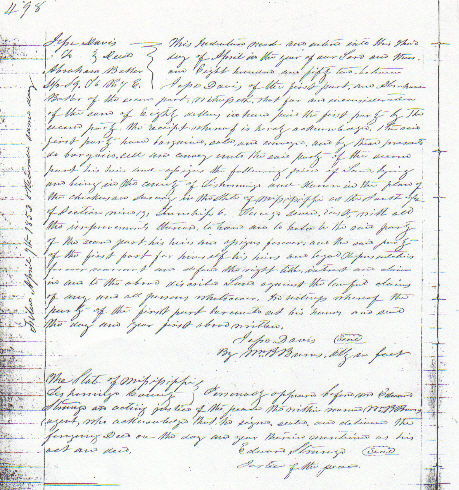 498
Jesse Davis This Indenture made and entered into this third
To Deed day of April in the year of our Lord one thous
Abraham Baker and Eight hundred and fifty two between
Jesse Davis of the first part, and Abraham
Baker of the second part, witnesseth, that for and in consideration
of the sum of Eighty dollars in hand paid the first party by the
second party the receipt whereof is hereby acknowledged, the said
first party have bargained, sold and conveyed, and by these presents
do bargain, sell and convey unto the said party of the second
part his heirs and assigns the following piece of Land lying
and being in the county of Tishomingo and known in the plan of
the chickasaw survey in the State of Mississippi as the South
of Section nine, Township 6, Range seven, East, with all
the improvements thereon, to have and to hold to the said party
of the second part his heirs and assigns forever, and the said party
of the first part for himself his heirs and legal Representatives
forever warrant and defend the right title interest and claim
in and to the above discribed Land against the lawful claims
of any and all persons whatsoever. In witness whereof the
party of the first part hereunto set his hand and seal
the day and year first above written.
Jesse Davis Seal
By Wm B Barns, Atty in fact
Filed April 9th 1853 Recorded same day
The State of Mississippi
Tishomingo County Personally appeared before me Edward
an acting Justice of the peace the within named W B Barns
agent, who acknowledged that he signed, sealed and delivered the
foregoing Deed on the day and year therein mentioned as his
act and deed.
Edward Seal
Justice of the peace